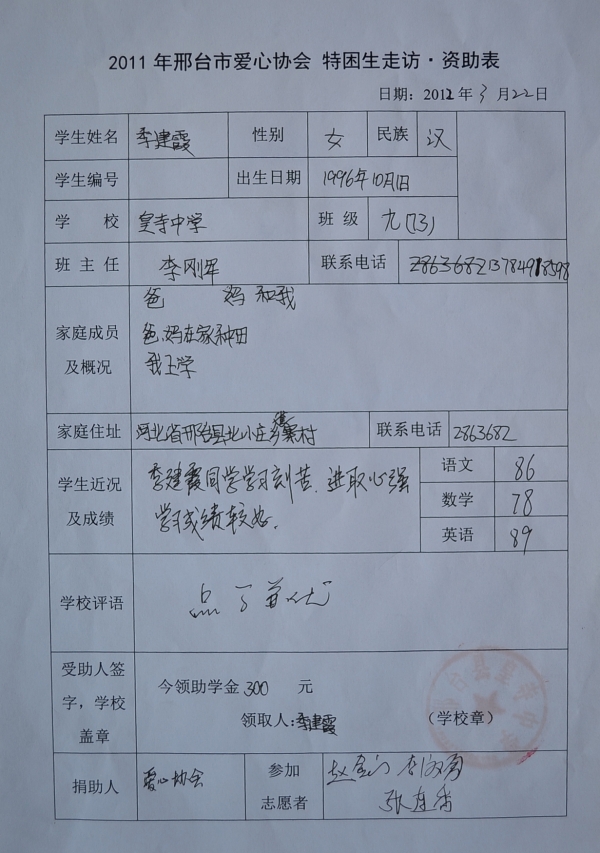 2011年邢台市爱心协会 特困生走访·资助表
日期：2012年3月22日
学生姓名 季建霞 性别 女 民族 汉
学生编号 出生日期 1996年10月1日
学 校 皇寺中学 班 级 九(13)
班 主 任 李刚军 联系电话 2863682 13784918598
家庭成员
及概况
爸 妈 和我
爸、妈在家种田
我上学
家庭住址 河北省邢台县北小庄 寨村 联系电话 2863682
学生近况
及成绩
季建霞同学学习刻苦、进取心强
学习成绩较好.
语文 86
数学 78
英语 89
学校评语
受助人签
字，学校
盖章
今领助学金 300 元
领取人：季建霞 （学校章）
捐助人 爱心协会 参加
志愿者